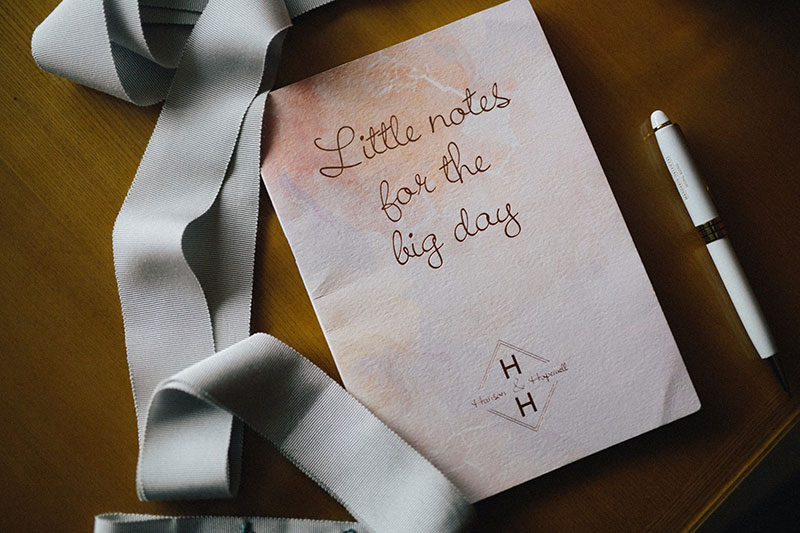 Little notes
for the
big day
H
Hanson & Hopewell
H